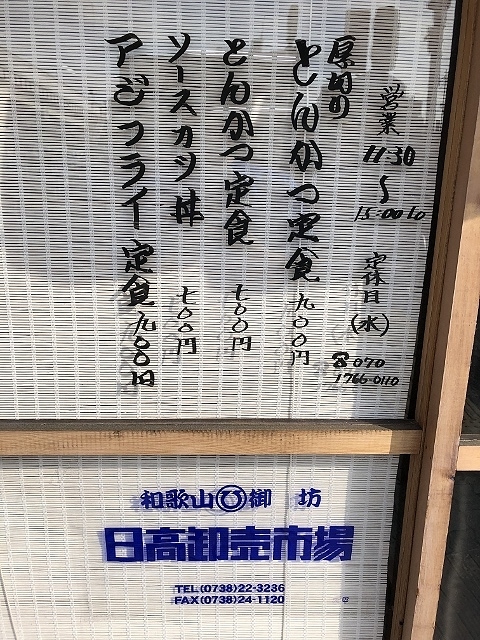 営業 11:30
〜
15:00 lo
定休日(水)
☎070
1766-0110
厚切り
とんかつ定食 九〇〇円
とんかつ定食 七〇〇円
ソースカツ丼 七〇〇円
アジフライ定食 九〇〇円
和歌山 御坊
日高卸売市場
TEL(0738)22-3236
FAX(0738)24-1120